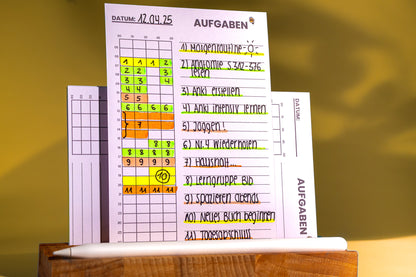 DATUM: 12.04.25
AUFGABEN
1) Morgenroutine
2) Anatomie S. 312-376
lesen
3) Anki erstellen
4) Anki intensiv lernen
5) Joggen!
6) Nr.4 Wiederholen
7) Haushalt...
8) Lerngruppe BIO
9) Spazieren abends
10) Neues Buch beginnen
11) Tagesabschluss
1 1 1 2
2 2 3
2 3 4
4 4
5 5
6 6 6 6
7
8 8
8 8 8 8
9 9 9 9
10
11 11 11 11
DATUM:
AUFGABEN